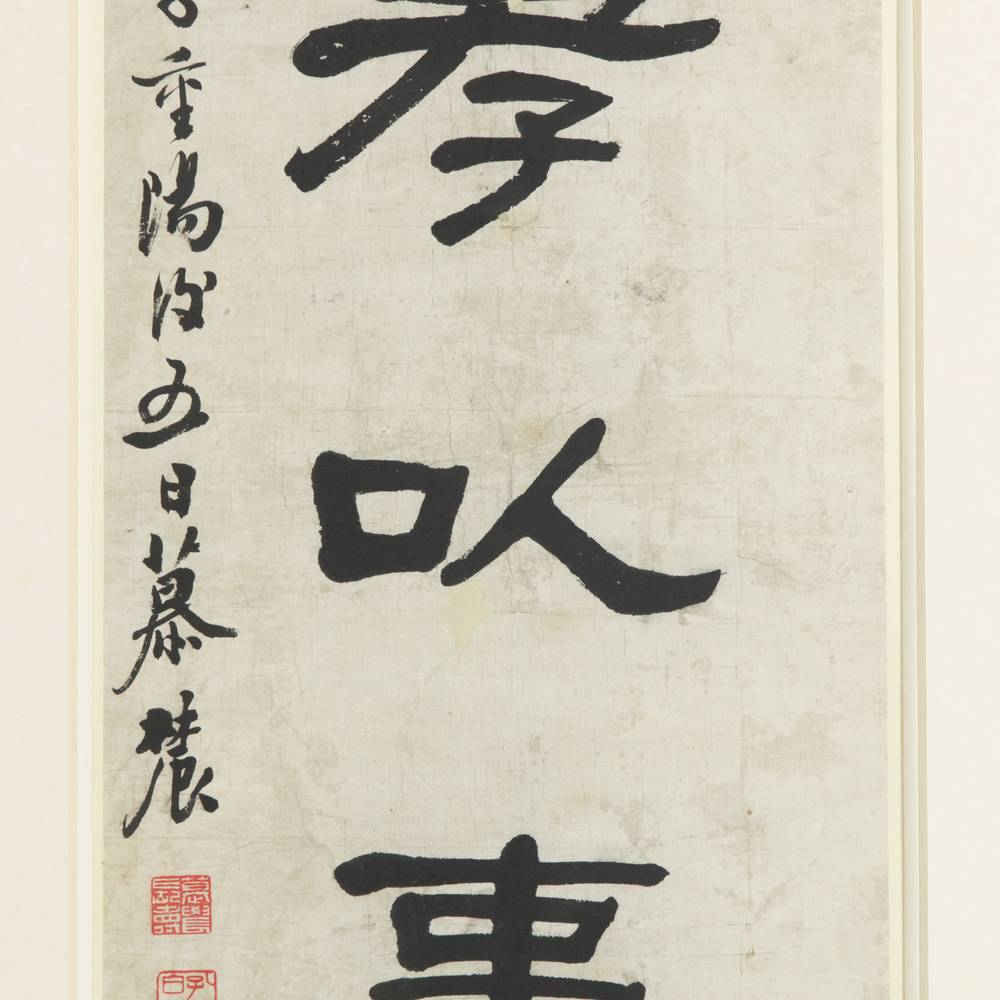 孝㕥事
重陽後五日慕辳